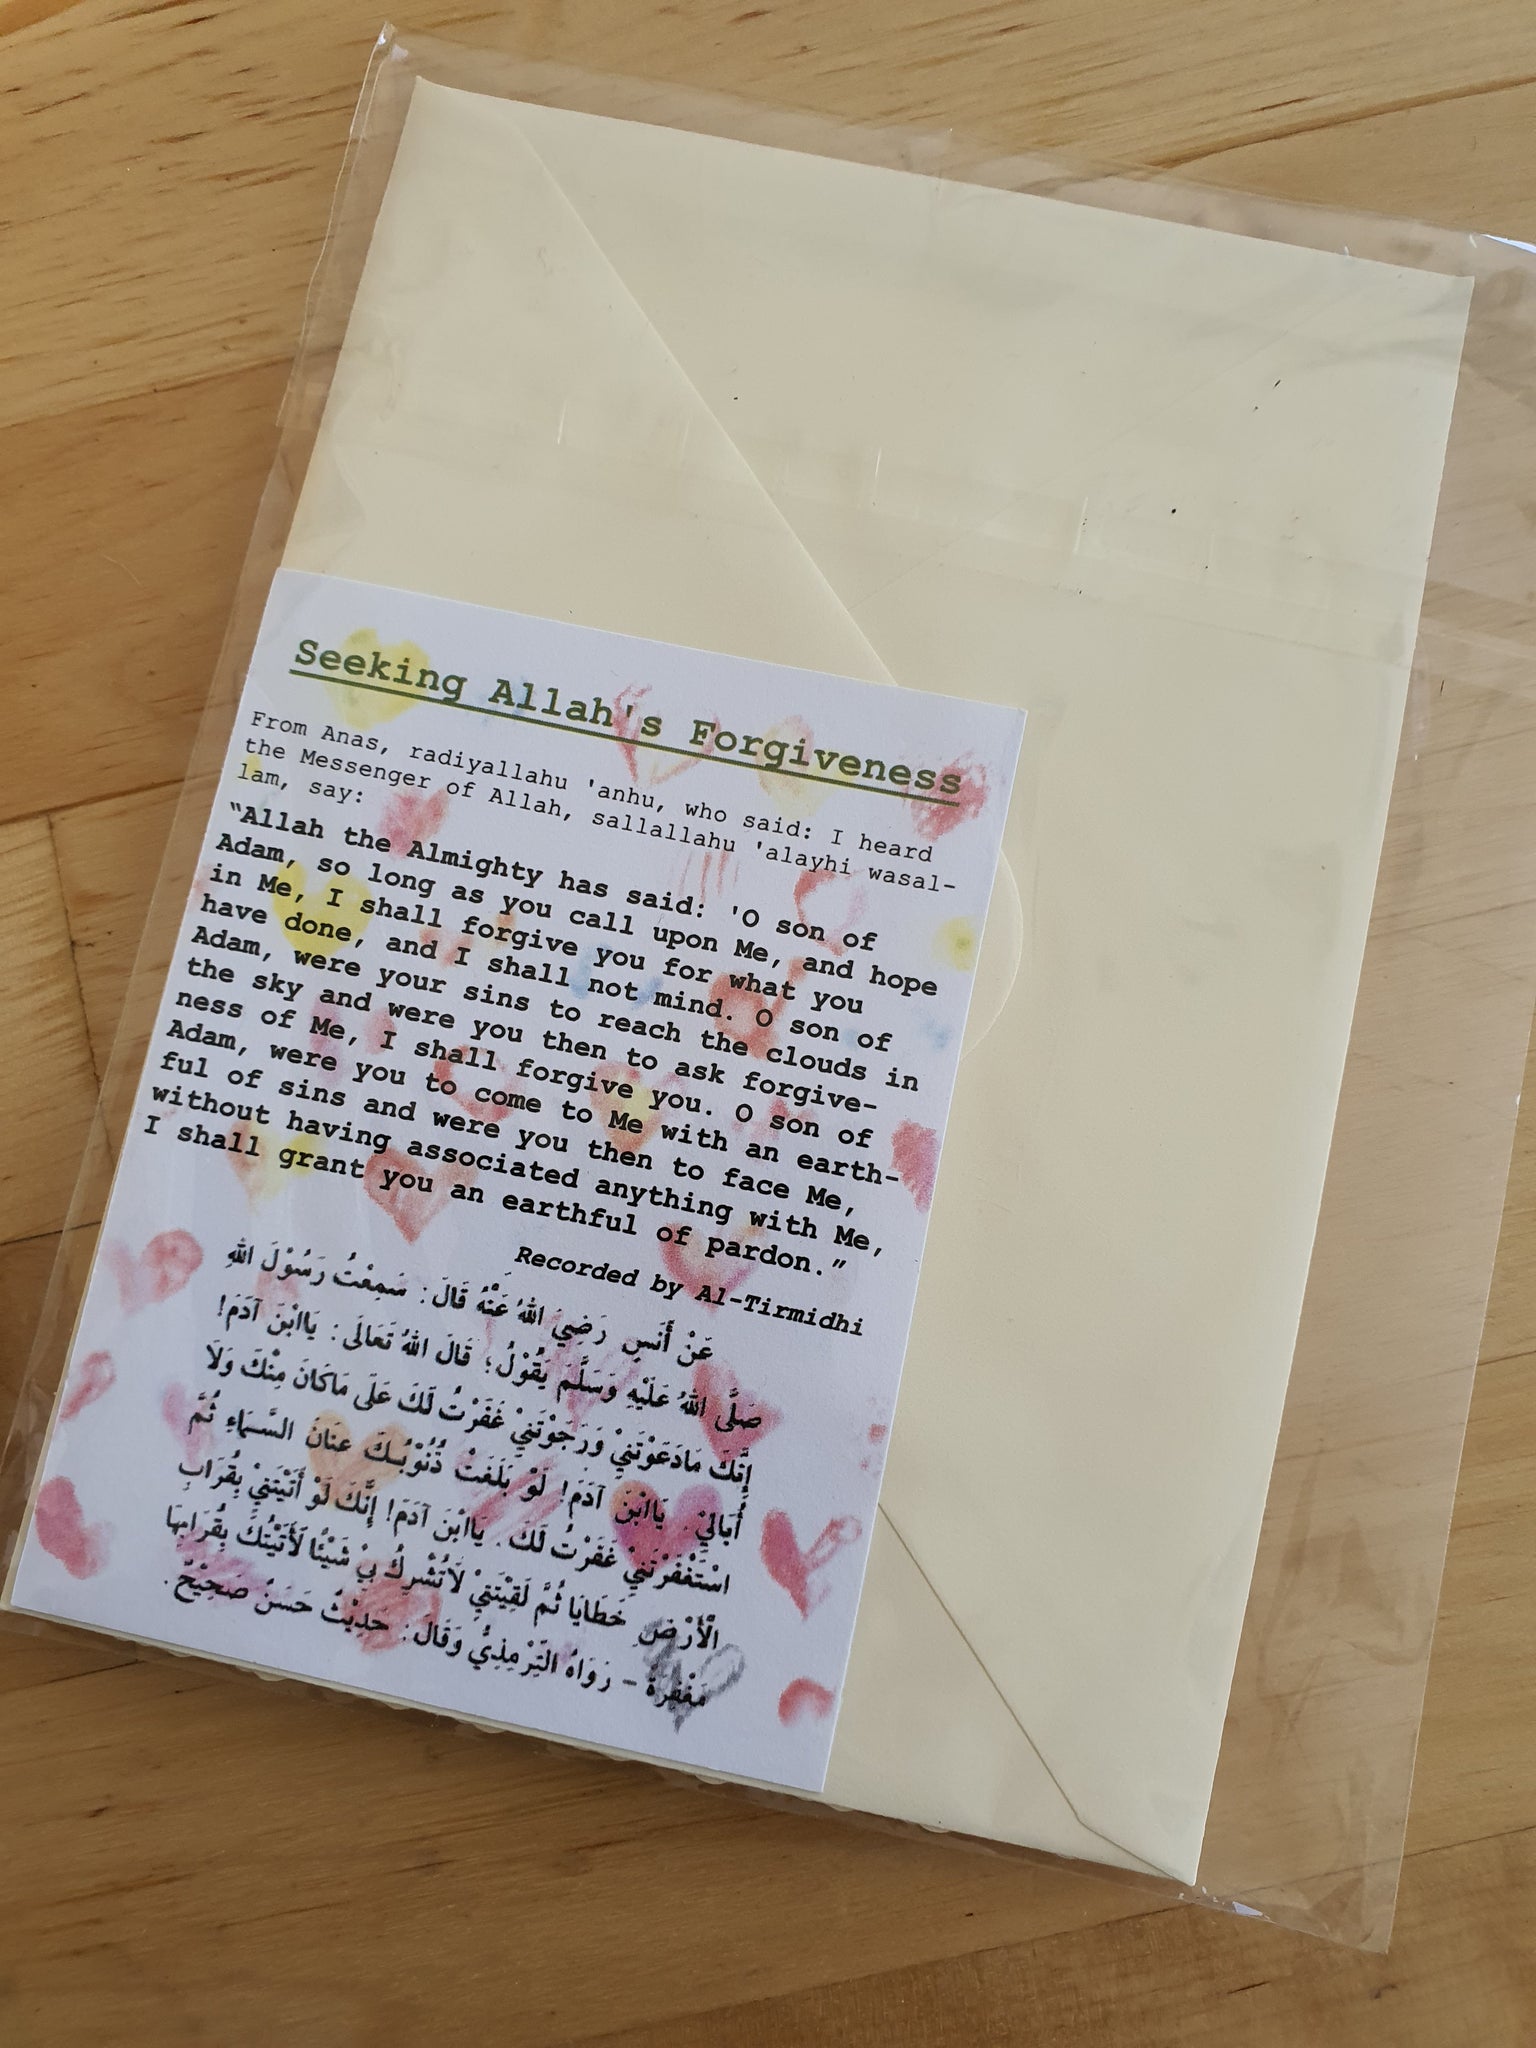 Seeking Allah's Forgiveness
From Anas, radiyallahu 'anhu, who said: I heard
the Messenger of Allah, sallallahu 'alayhi wasal-
lam, say:
“Allah the Almighty has said: 'O son of
Adam, so long as you call upon Me, and hope
in Me, I shall forgive you for what you
have done, and I shall not mind. O son of
Adam, were your sins to reach the clouds in
the sky and were you then to ask forgive-
ness of Me, I shall forgive you. O son of
Adam, were you to come to Me with an earth-
ful of sins and were you then to face Me,
without having associated anything with Me,
I shall grant you an earthful of pardon.”
Recorded by Al-Tirmidhi
عَنْ أَنَسٍ رَضِيَ اللهُ عَنْهُ قَالَ: سَمِعْتُ رَسُوْلَ اللهِ
صَلَّى اللهُ عَلَيْهِ وَسَلَّمَ يَقُوْلُ؛ قَالَ اللهُ تَعَالَى: يَاابْنَ آدَمَ!
إِنَّكَ مَادَعَوْتَنِيْ وَرَجَوْتَنِيْ غَفَرْتُ لَكَ عَلَى مَاكَانَ مِنْكَ وَلَا
أُبَالِيْ. يَاابْنَ آدَمَ! لَوْ بَلَغَتْ ذُنُوْبُكَ عَنَانَ السَّمَاءِ ثُمَّ
اسْتَغْفَرْتَنِيْ غَفَرْتُ لَكَ. يَاابْنَ آدَمَ! إِنَّكَ لَوْ أَتَيْتَنِيْ بِقُرَابِ
الْأَرْضِ خَطَايَا ثُمَّ لَقِيْتَنِيْ لَاتُشْرِكُ بِيْ شَيْئًا لَأَتَيْتُكَ بِقُرَابِهَا
مَغْفِرَةً – رَوَاهُ التِّرْمِذِيُّ وَقَالَ: حَدِيْثٌ حَسَنٌ صَحِيْحٌ.